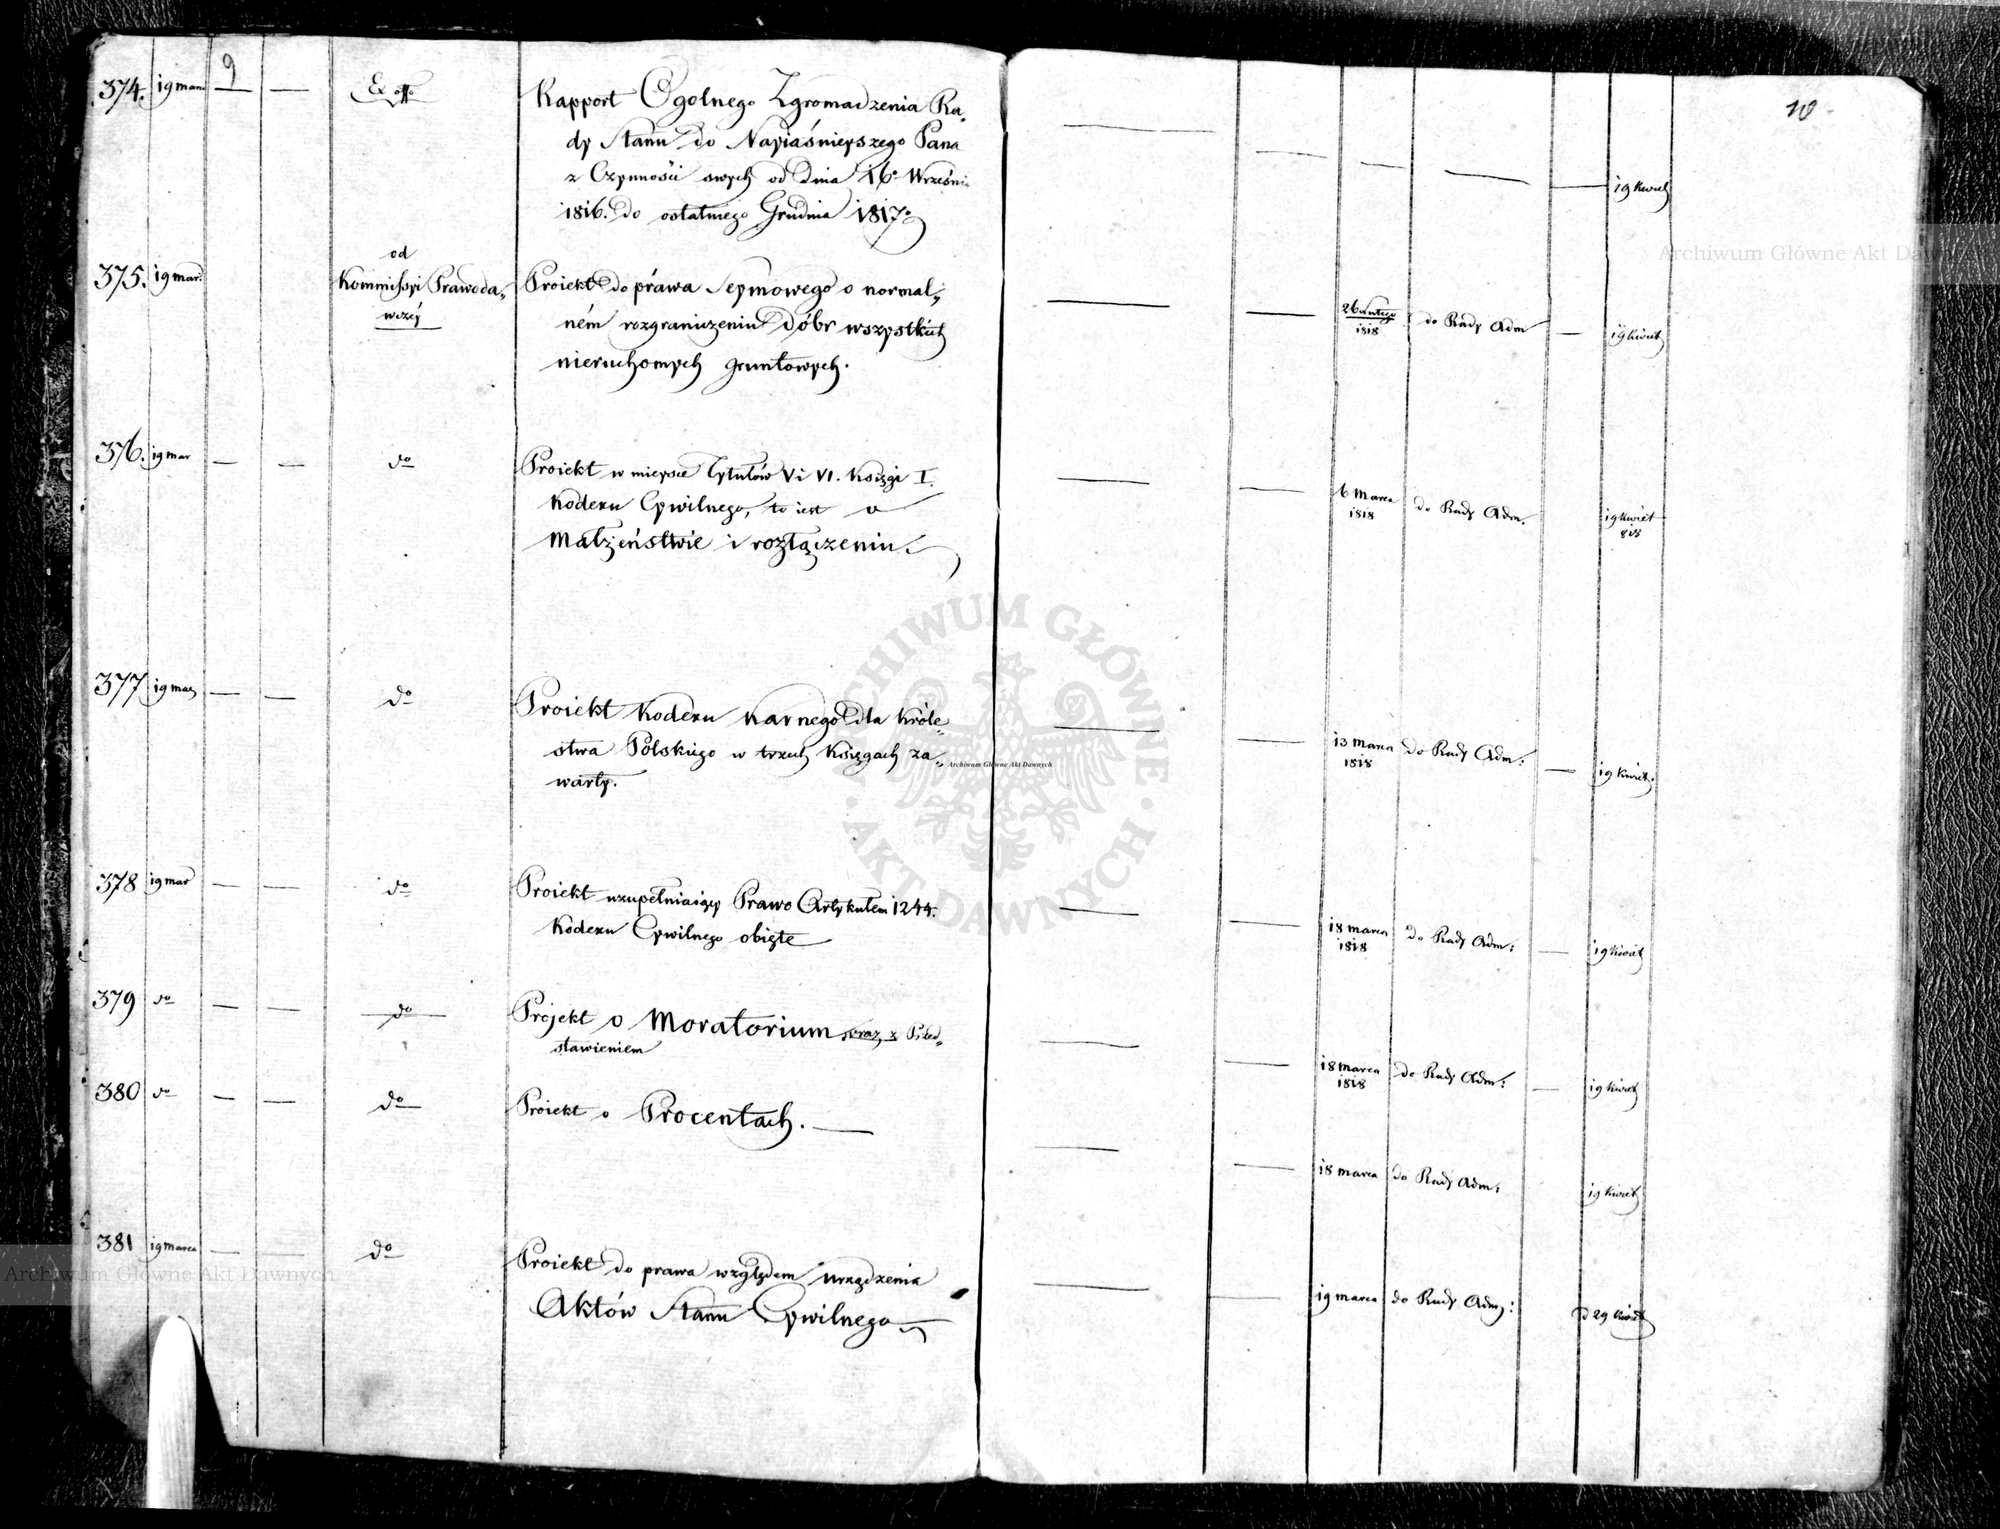 9
10
374. 19 mar. — — Ex offo Rapport Ogolnego Zgromadzenia Ra„
dy Stanu do Nayiaśnieyszego Pana
z Czynności swych od dnia 16º Wrześni
1816. do ostatniego Grudnia 1817º
— — — — — 19 Kwiet
375. 19 mar. od
Kommissyi Prawoda„
wczéy
Proiekt do práwa Seymowego o normal„
ném rozgraniczeniu dóbr wszystkich
nieruchomych gruntowych.
— — 26 Lutego
1818
do Rady Adm — 19 Kwiet
376. 19 mar — — do Proiekt w mieysce Tytułów V i VI. Księgi I.
Kodexu Cywilnego, to iest o
Małżeństwie i rozłączeniu.
— — 6 Marca
1818
do Rady Adm. 19 Kwiet
818
377 19 mar — — do Proiekt Kodexu Karnego dla Króle„
stwa Polskiego w trzech Księgach za„
warty.
— — 13 Marca
1818
do Rady Adm: — 19 Kwiet.
378 19 mar — — do Proiekt uzupełniaiący Prawo Artykułem 1244.
Kodexu Cywilnego obięte
— — 18 marca
1818
do Rady Adm: — 19 Kwiet
379 do — — do Projekt o Moratorium wraz z Przed„
stawieniem
— — 18 marca
1818
do Rady Adm: — 19 Kwiet
380 do — — do Proiekt o Procentach. —
— — 18 marca do Rady Adm: 19 Kwiet
381 19 marca — — do Proiekt do prawa względem urządzenia
Aktów Stanu Cywilnego
— — 19 marca do Rady Adm: d 29 Kwiet
Archiwum Główne Akt Dawnych
ARCHIWUM GŁÓWNE · AKT DAWNYCH ·
Archiwum Główne Akt Dawnych
Archiwum Główne Akt Dawnych